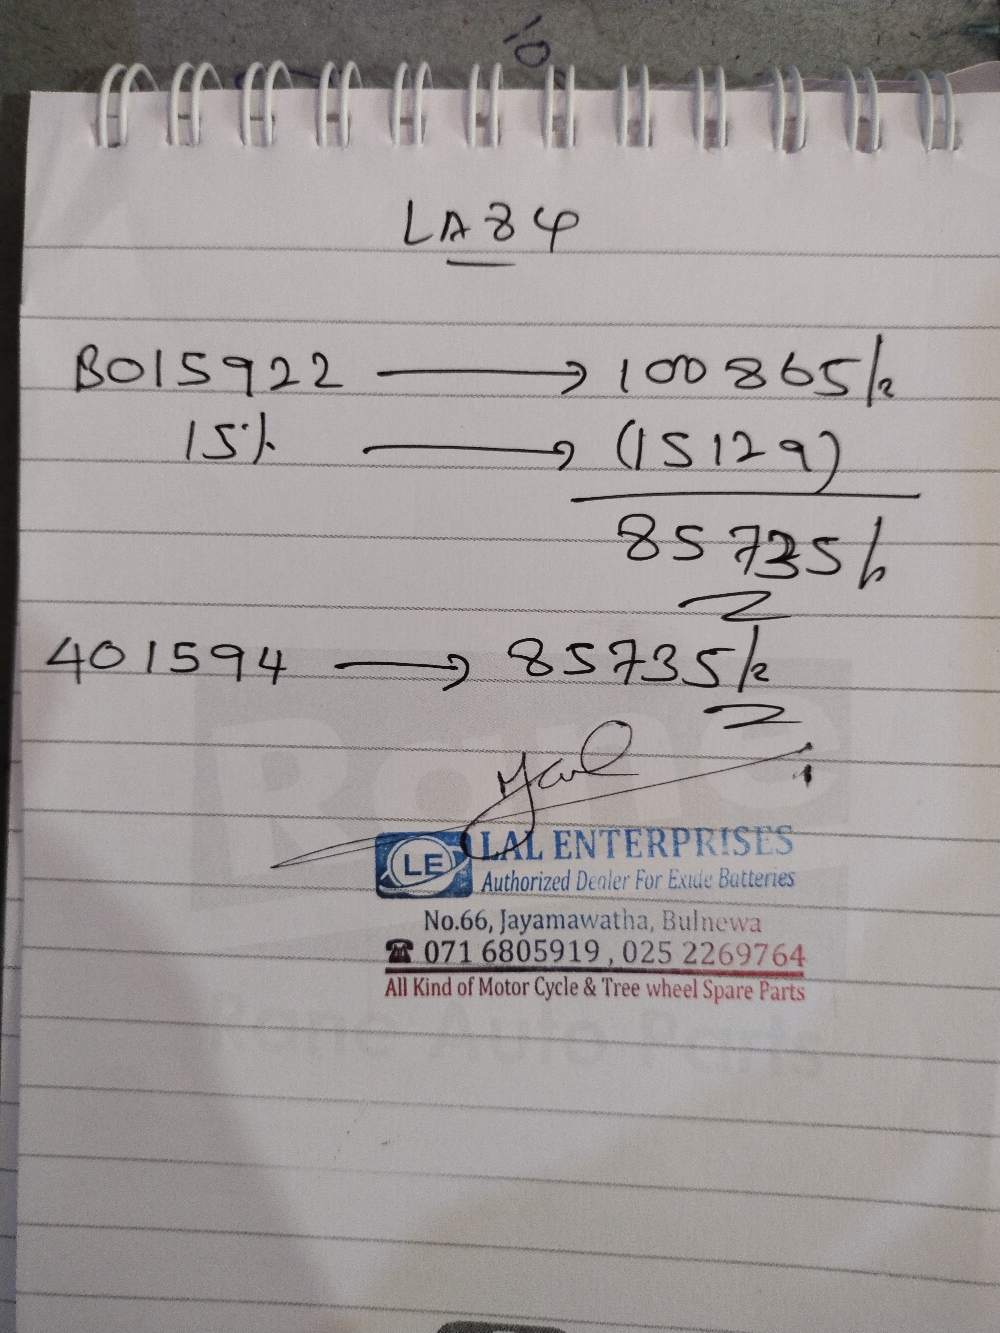 LA84
B015922 → 100865/=
15% → (15129)
85735/=
401594 → 85735/=
LE LAL ENTERPRISES
Authorized Dealer For Exide Batteries
No.66, Jayamawatha, Bulnewa
☎ 071 6805919 , 025 2269764
All Kind of Motor Cycle & Tree wheel Spare Parts
Rane
Rane Auto Parts